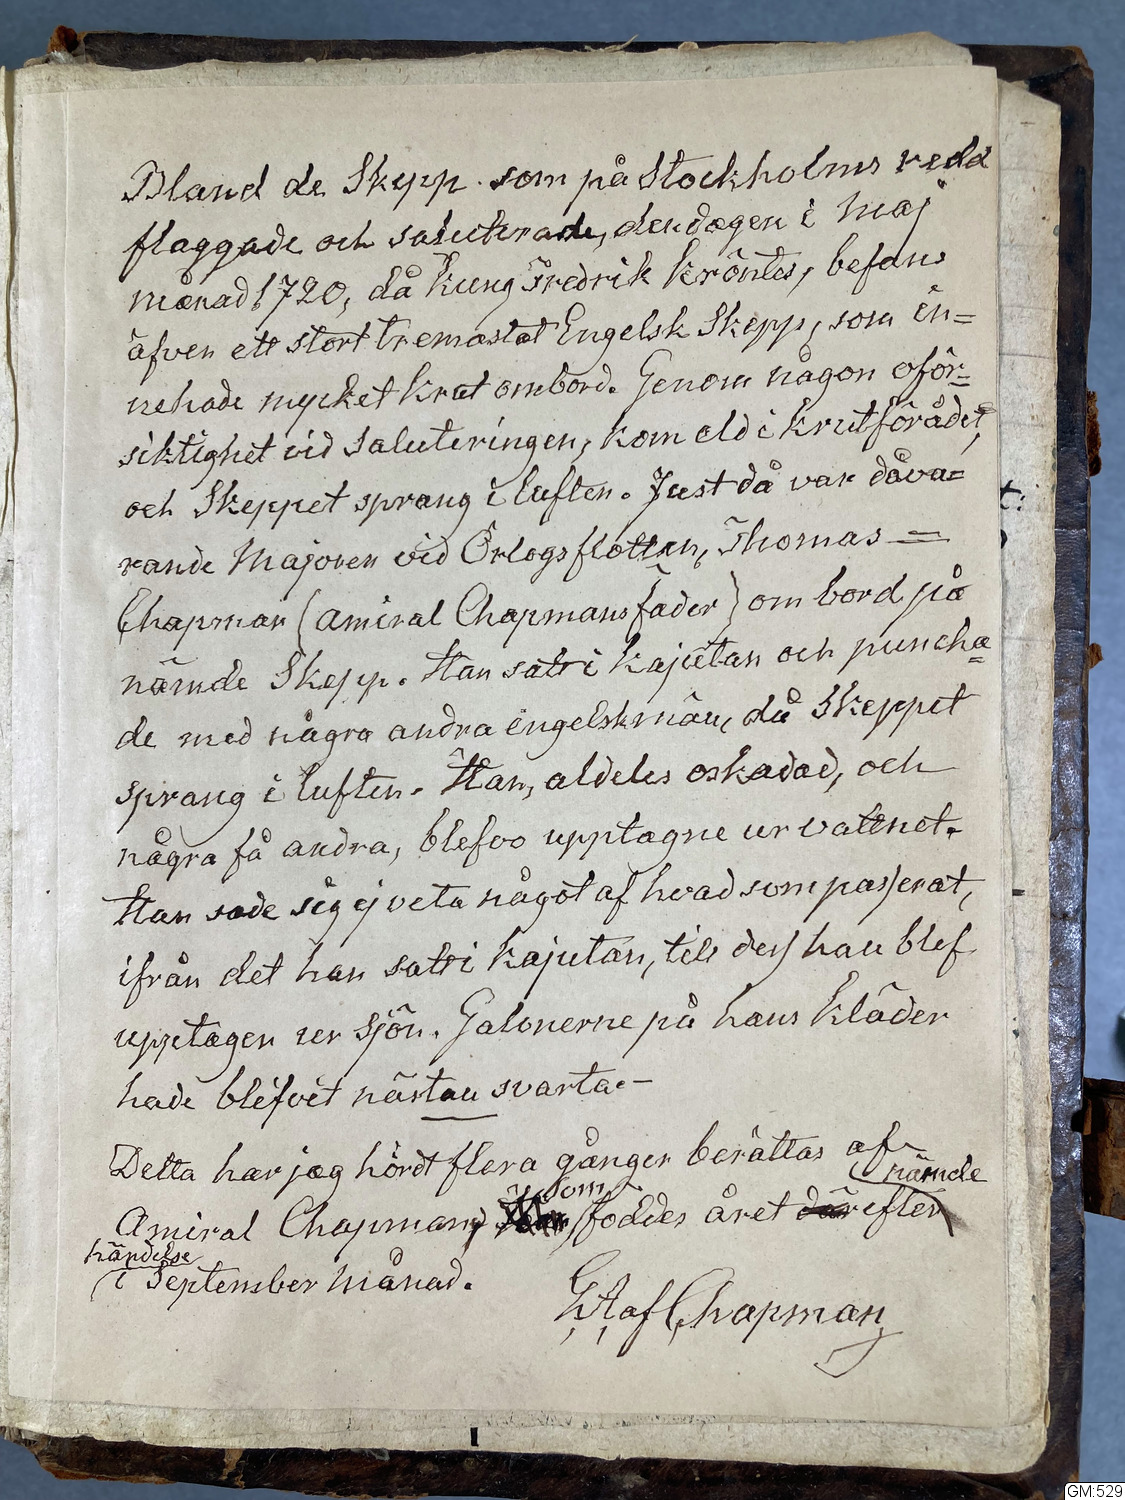 Bland de Skepp som på Stockholms redd
flaggade och saluterade, den dagen i Maj
månad 1720, då kung Fredrik kröntes, befans
äfven ett stort tremastat Engelsk Skepp, som in=
nehade mycket krut ombord. Genom någon oför=
siktighet vid saluteringen, kom eld i krutförrådet,
och Skeppet sprang i luften. Just då var dåva=
rande Majoren vid Örlogsflottan, Thomas =
Chapman (Amiral Chapmans fader) om bord på
nämde Skepp. Han satt i kajutan och puncha=
de med några andra engelsmän, då Skeppet
sprang i luften. Han, aldeles oskadad, och
några få andra, blefvo upptagne ur vattnet.
Han sade sig ej veta något af hvad som passerat,
ifrån det han satt i kajutan, tils dess han blef
upptagen ur sjön. Galonerne på hans kläder
hade blifvit nästan svarta.—
Detta har jag hördt flera gånger berättas af
nämde
Amiral Chapman, som föddes året därefter
händelse
i September månad.
G, A, af Chapman
GM:529